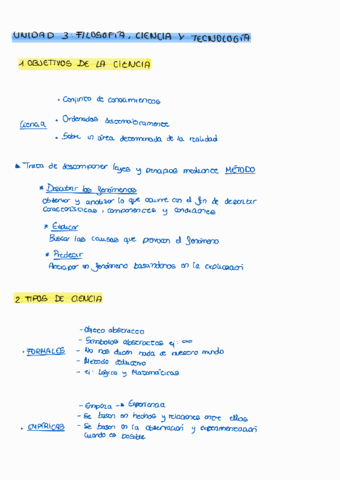 UNIDAD 3: FILOSOFÍA, CIENCIA Y TECNOLOGÍA
1. OBJETIVOS DE LA CIENCIA
· Conjunto de conocimientos
Ciencia · Ordenados sistemáticamente
· Sobre un área determinada de la realidad
Trata de descomponer leyes y principios mediante MÉTODO
* Describir los fenómenos
Observar y analizar lo que ocurre con el fin de descartar
características, componentes y condiciones
* Explicar
Buscar las causas que provocan el fenómeno
* Predecir
Anticipar un fenómeno basandonos en la explicación
2. TIPOS DE CIENCIA
- Objeto abstracto
- Símbolos abstractos ej: ∞
· FORMALES - No nos dicen nada de nuestro mundo
- Método deductivo
- ej: Lógica y Matemáticas
- Empiria → Experiencia
- Se basan en hechos y relaciones entre ellos
· EMPÍRICAS - Se basan en la observación y experimentación
cuando es posible